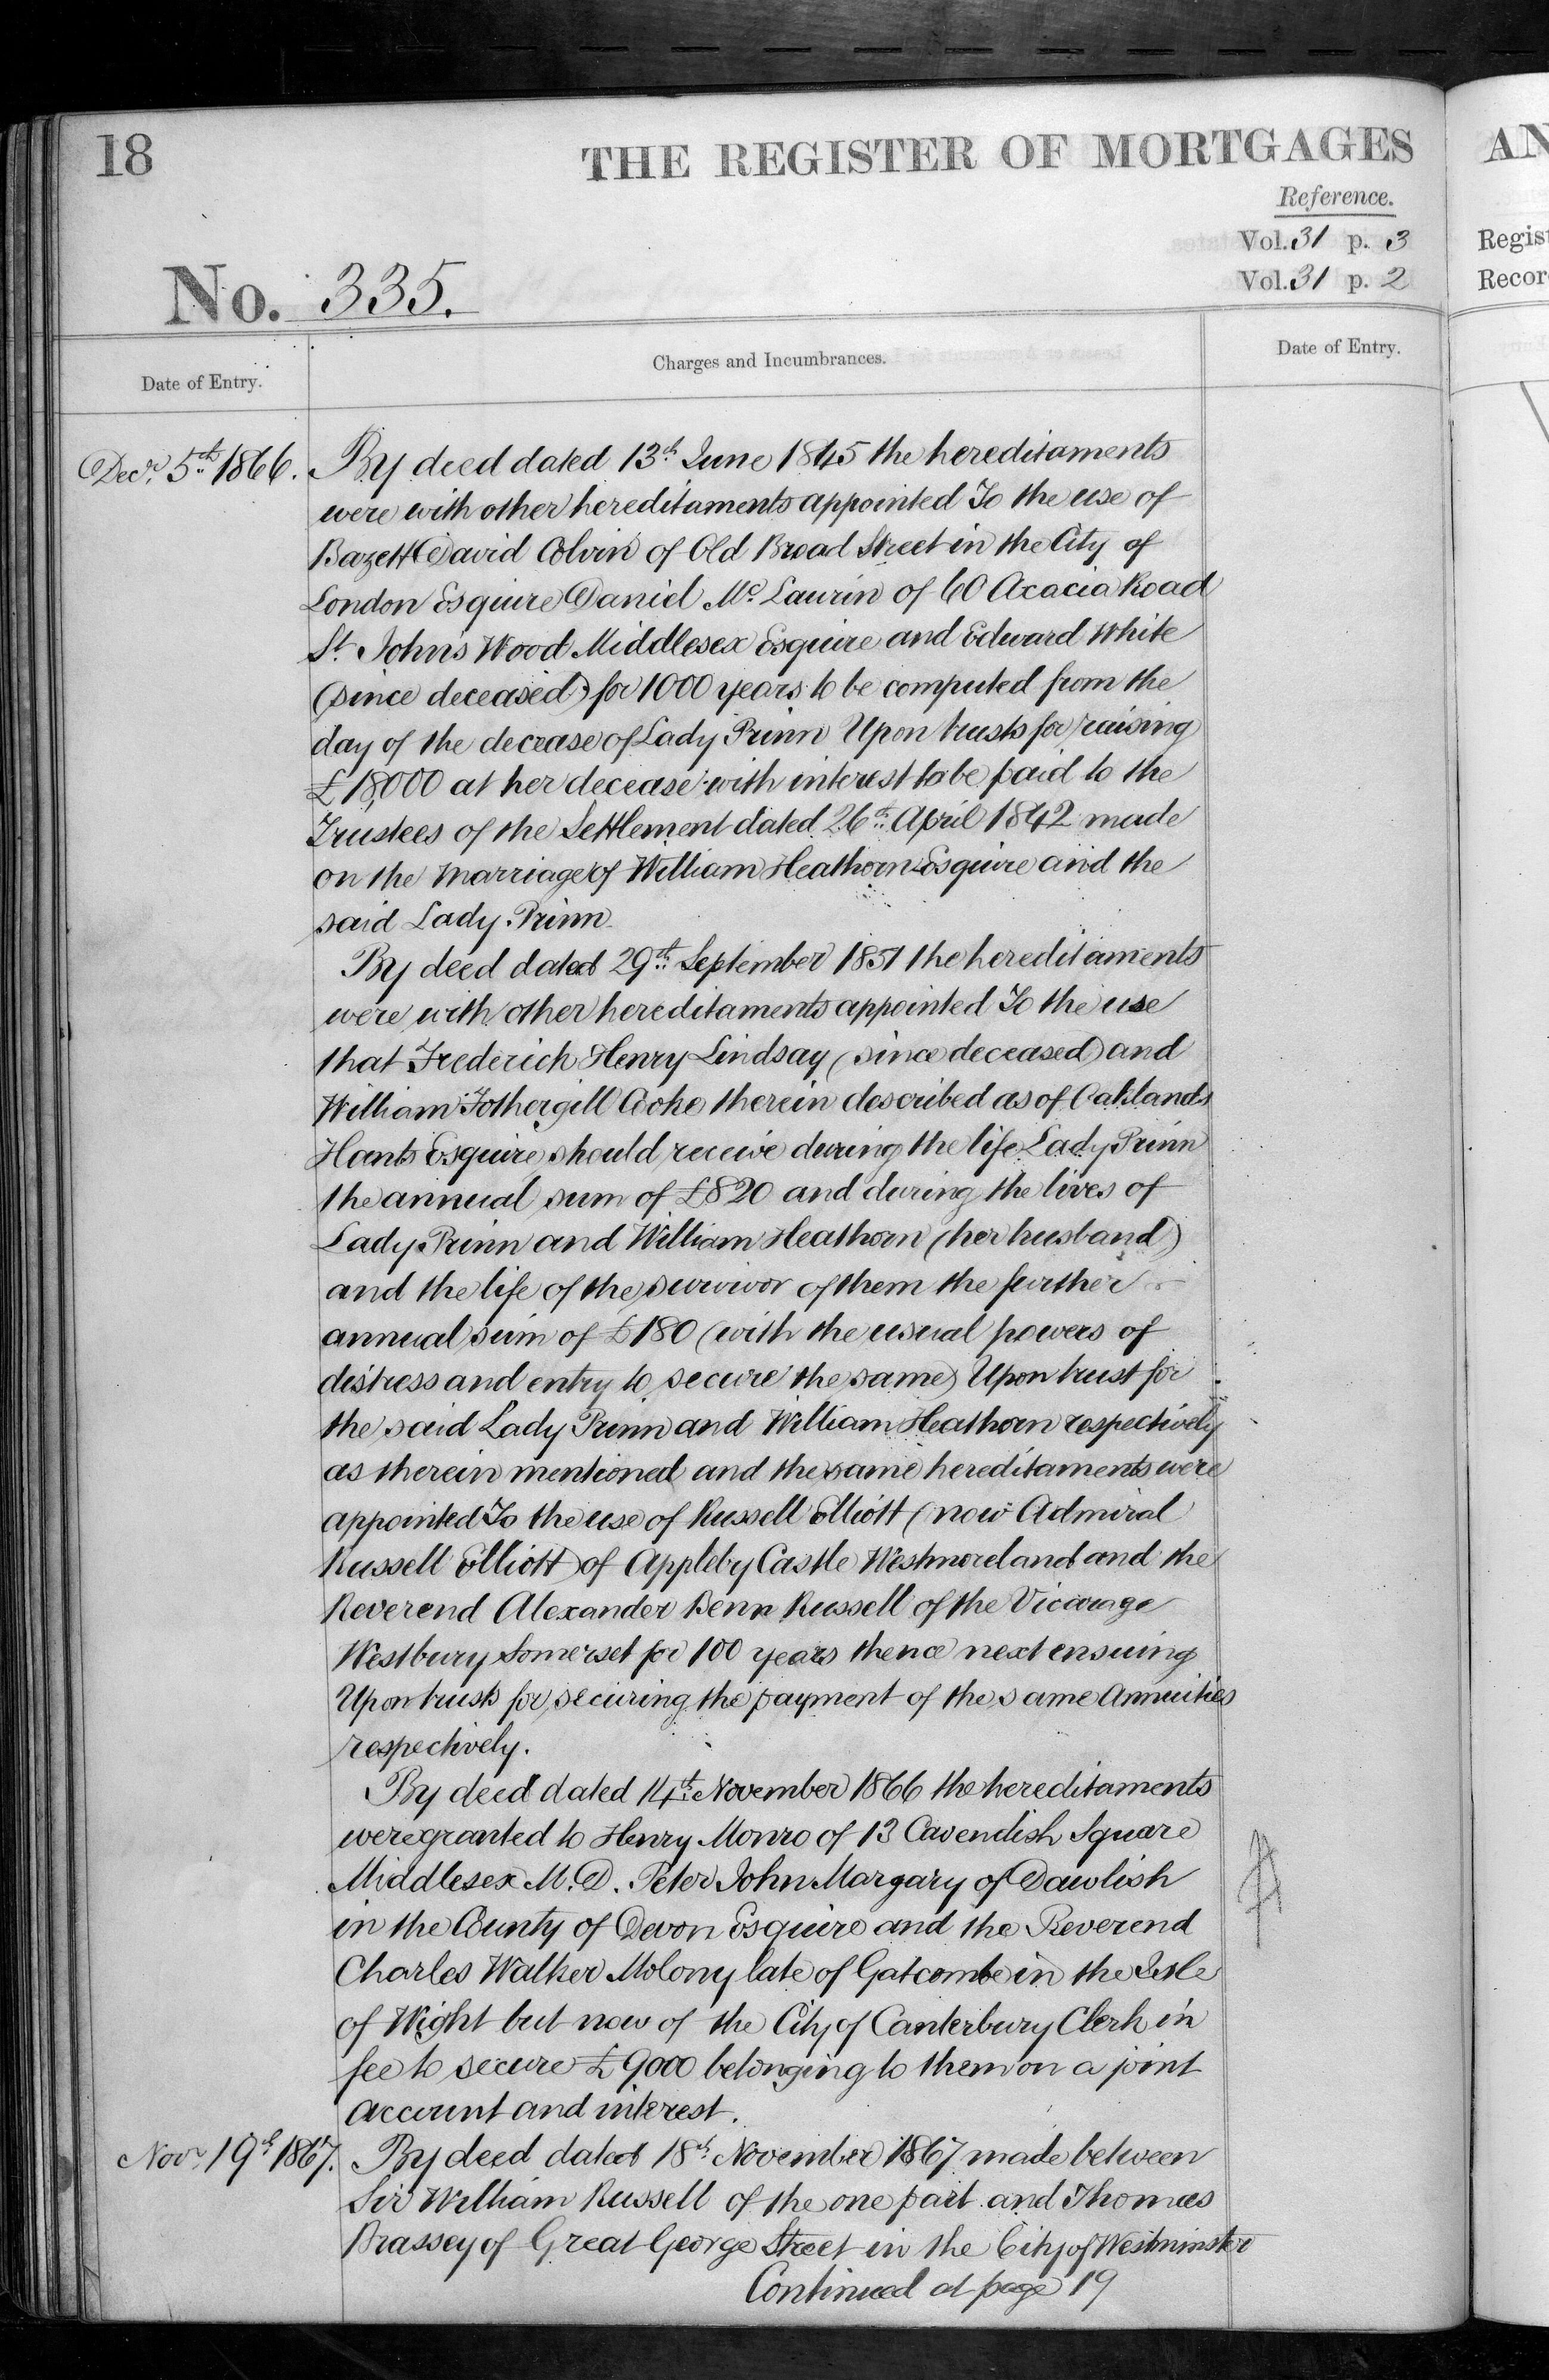 18
THE REGISTER OF MORTGAGES
AN
Reference.
Vol. 31 p. 3
Regist
Vol. 31 p. 2
Recor
No. 335.
Date of Entry.
Charges and Incumbrances.
Date of Entry.
Decr. 5th 1866. By deed dated 13th June 1845 the hereditaments
were with other hereditaments appointed To the use of
Bazett David Colvin of Old Broad Street in the City of
London Esquire Daniel Mc Laurin of 60 Acacia Road
St. John's Wood Middlesex Esquire and Edward White
(since deceased) for 1000 years to be computed from the
day of the decease of Lady Prinn Upon trusts for raising
£18,000 at her decease with interest to be paid to the
Trustees of the Settlement dated 26th April 1842 made
on the marriage of William Heathorn Esquire and the
said Lady Prinn
By deed dated 29th September 1851 the hereditaments
were with other hereditaments appointed To the use
that Frederick Henry Lindsay (since deceased) and
William Fothergill Cooke therein described as of Oaklands
Hants Esquire should receive during the life Lady Prinn
the annual sum of £820 and during the lives of
Lady Prinn and William Heathorn (her husband)
and the life of the survivor of them the further
annual sum of £180 (with the usual powers of
distress and entry to secure the same) Upon trust for
the said Lady Prinn and William Heathorn respectively
as therein mentioned and the same hereditaments were
appointed To the use of Russell Elliott (now Admiral
Russell Elliott) of Appleby Castle Westmoreland and the
Reverend Alexander Benn Russell of the Vicarage
Westbury Somerset for 100 years thence next ensuing
Upon trusts for securing the payment of the same Annuities
respectively.
By deed dated 14th November 1866 the hereditaments
were granted to Henry Monro of 13 Cavendish Square
Middlesex M.D. Peter John Margary of Dawlish
in the County of Devon Esquire and the Reverend
Charles Walker Molony late of Gatcombe in the Isle
of Wight but now of the City of Canterbury Clerk in
fee to secure £9000 belonging to them on a joint
account and interest.
Novr. 19th 1867. By deed dated 18th November 1867 made between
Sir William Russell of the one part and Thomas
Brassey of Great George Street in the City of Westminster
Continued at page 19